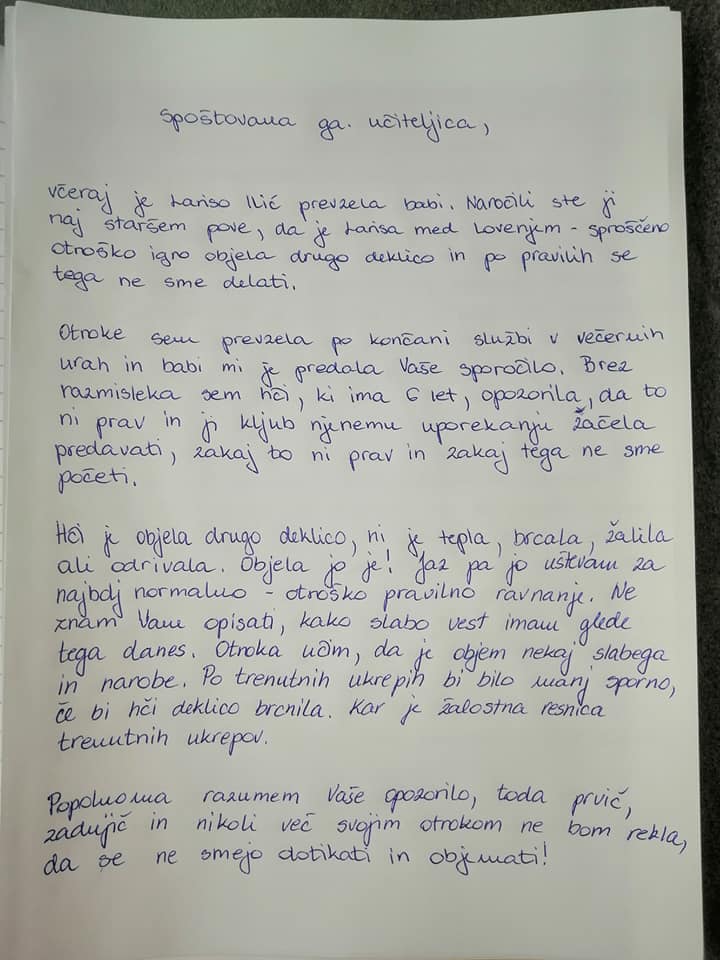 Spoštovana ga. učiteljica,
včeraj je Lariso Ilić prevzela babi. Naročili ste ji
naj staršem pove, da je Larisa med Lovenjem - sproščeno
otroško igro objela drugo deklico in po pravilih se
tega ne sme delati.
Otroke sem prevzela po končani službi v večernih
urah in babi mi je predala Vaše sporočilo. Brez
razmisleka sem hči, ki ima 6 let, opozorila, da to
ni prav in ji kljub njenemu uporekanju začela
predavati, zakaj to ni prav in zakaj tega ne sme
početi.
Hči je objela drugo deklico, ni je tepla, brcala, žalila
ali odrivala. Objela jo je! Jaz pa jo uštvam za
najbolj normalno - otroško pravilno ravnanje. Ne
znam Vam opisati, kako slabo vest imam glede
tega danes. Otroka učim, da je objem nekaj slabega
in narobe. Po trenutnih ukrepih bi bilo manj sporno,
če bi hči deklico brcnila. Kar je žalostna resnica
trenutnih ukrepov.
Popolnoma razumem Vaše opozorilo, toda prvič,
zadnjič in nikoli več svojim otrokom ne bom rekla,
da se ne smejo dotikati in objemati!